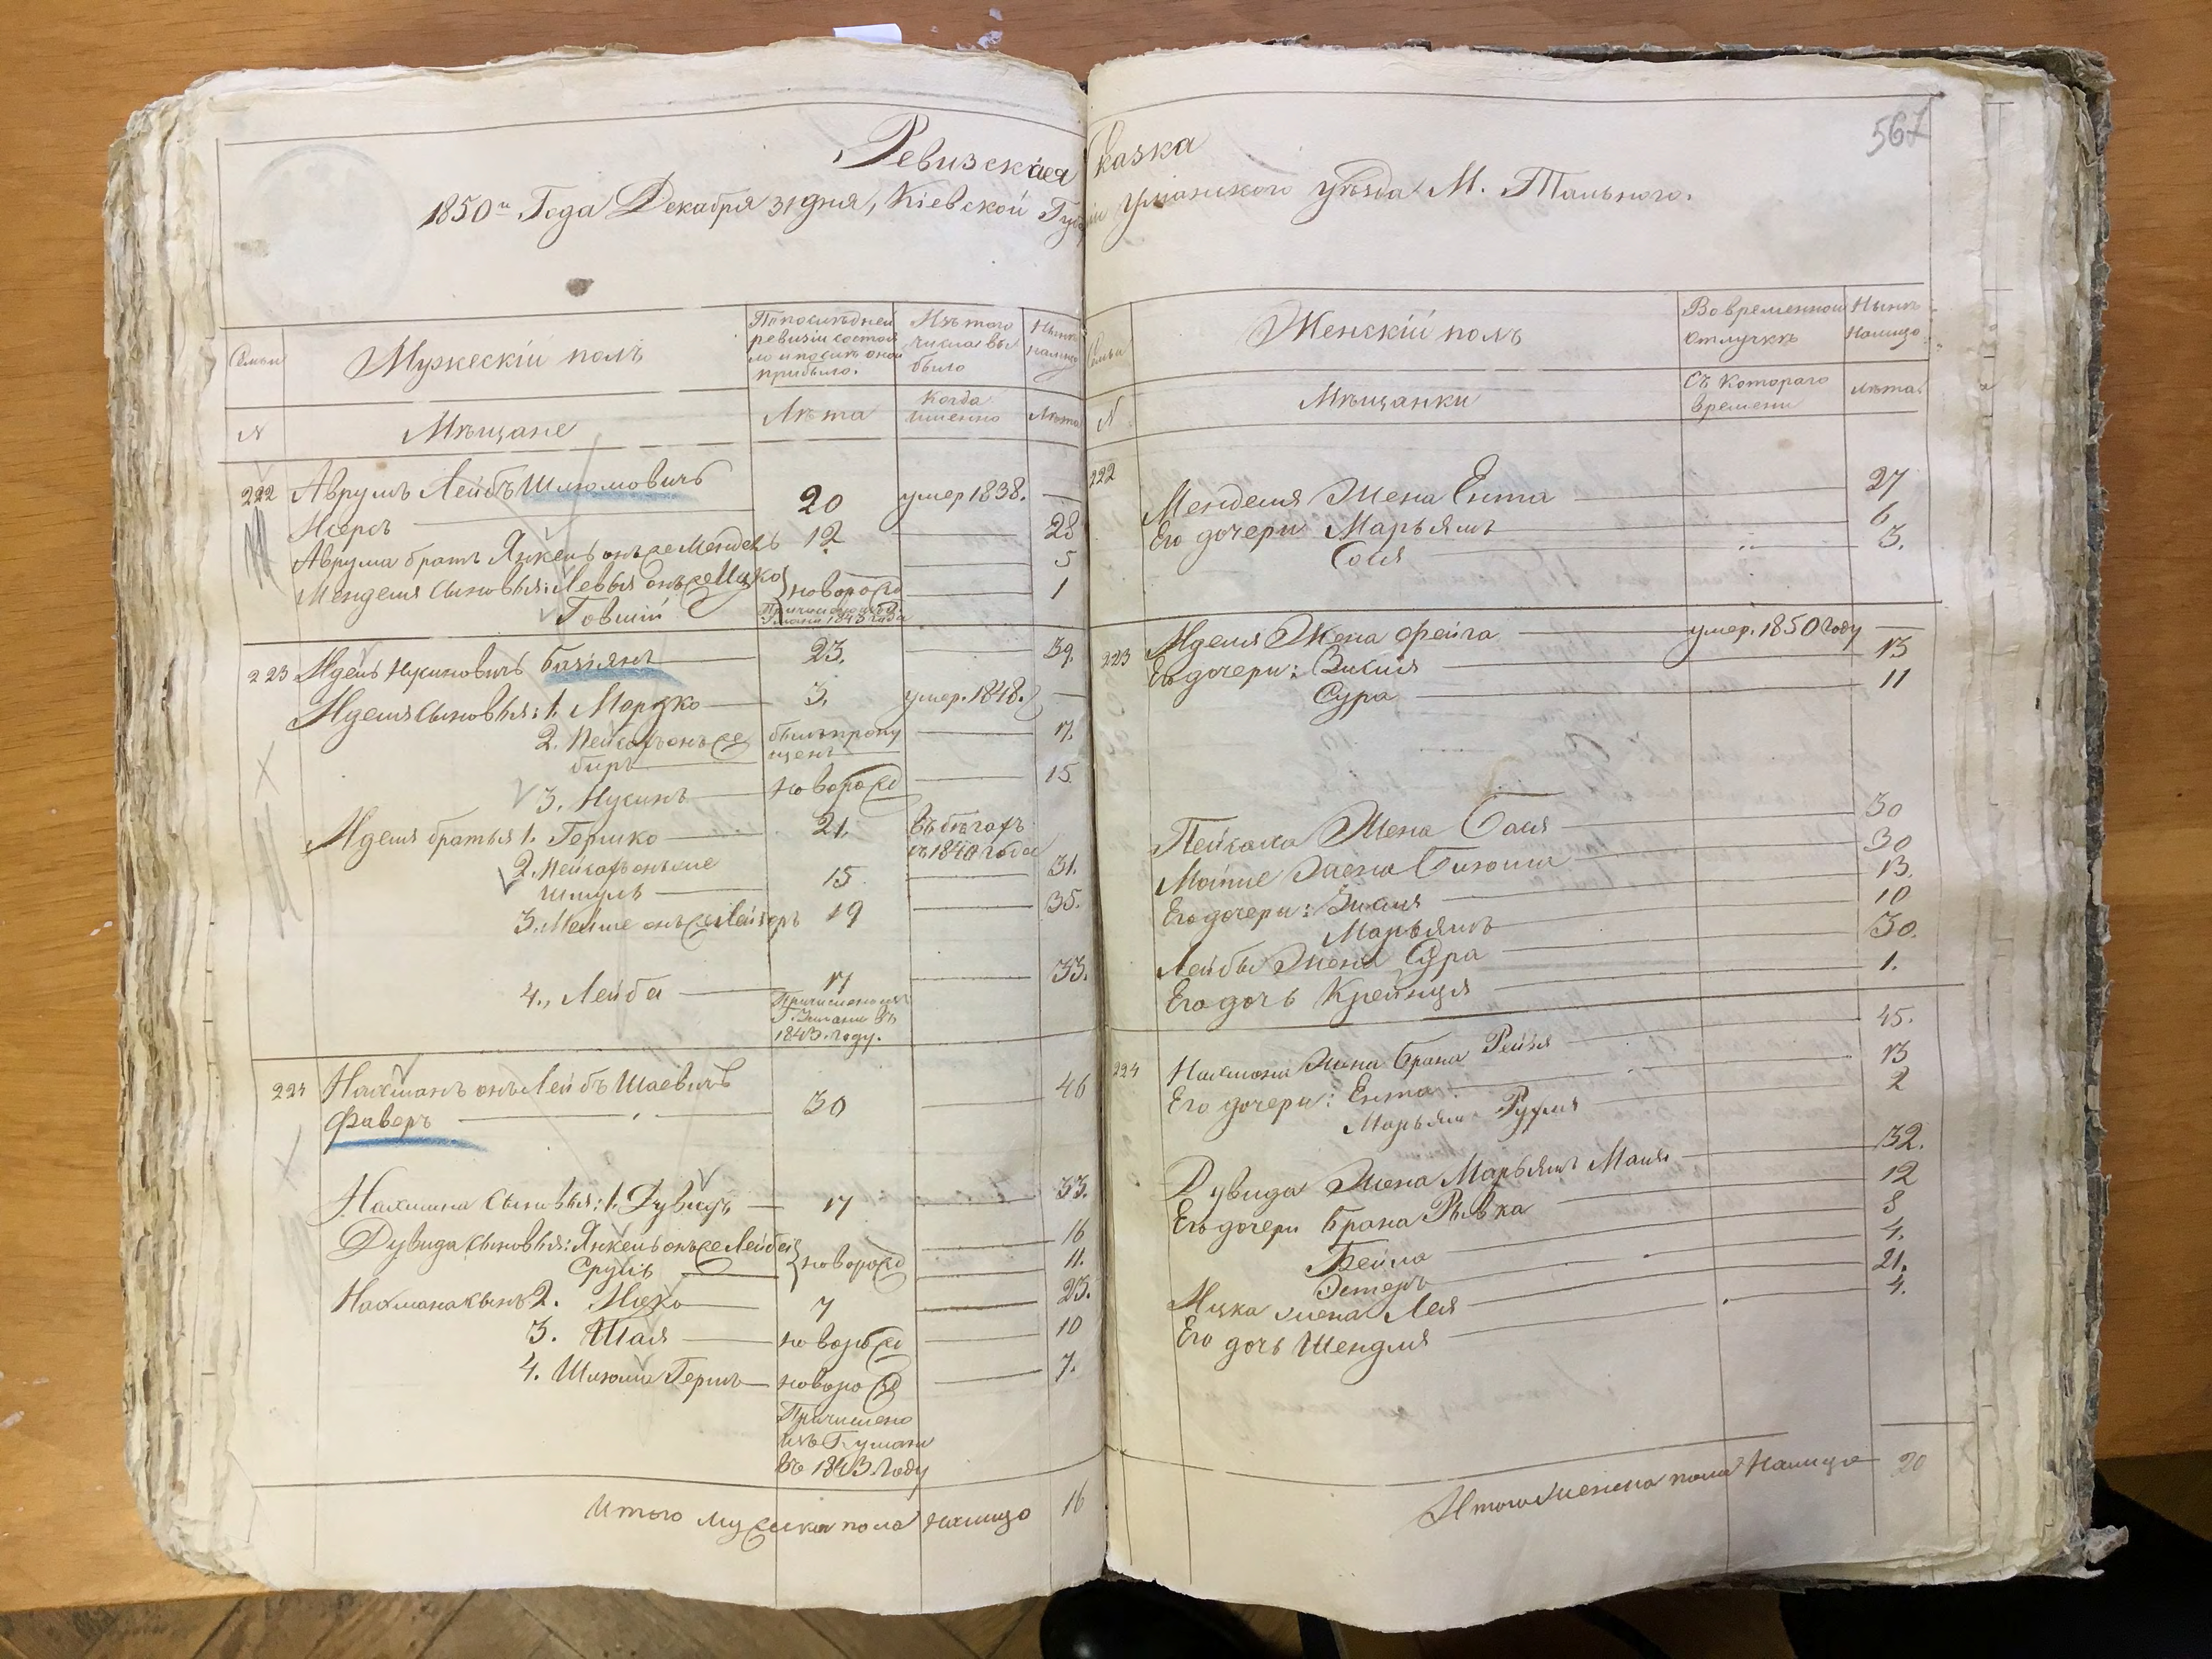 567
Ревизская Сказка
1850го Года Декабря 31 дня, Кіевской Губ Уманского уѣзда М. Тального.
Семьи
Мужескій полъ
По последней
ревизіи состоя
ло и послѣ оной
прибыло.
Изъ того
числа вы
было
Нынѣ
налицо
N
Мѣщане
Лѣта
Когда
именно
Лѣта
222 Аврумъ Лейбъ Шлюмовичъ
20 умер 1838. —
Аврума братъ Янкель онъ же Мендель 12 — 28
Менделя сыновья: Лейбъ онъ же Ицко — 5
новорожд — 1
223 Идель Нусиновичъ 23. — 39.
Иделя сыновья: 1. Мошко — 3. умер. 1848. —
2. Пейсахъ онъ же
беръ
былъ пропу
щенъ — 17.
3. Нусинъ — новорожд — 15
Иделя братья 1. Гершко — 21. въ бегахъ
съ 1840 года
2. Пейсахъ онъ же
Шмуль — 15 — 31.
3. Мойше онъ же Лейзоръ 19 — 35.
4., Лейба — 17 — 33.
1843. году.
224 Нахманъ онъ Лейбъ Шаевичъ
Фаверъ — 30 — 46
Нахмана сыновья: 1. Дувидъ — 17 — 33.
Дувида сыновья: Янкель онъ же Лейба — 16
Сруль — новорожд — 11.
Нахмана сынъ 2. Ицко — 7 — 23.
3. Шая — новорожд — 10
4. Шлюма Гершъ — новорожд — 7.
Причислено
изъ Г. Умани
въ 1843 году
Итого мужеска пола налицо 16
Семьи
Женскій полъ
Во временной
отлучкѣ
Нынѣ
Налицо
N
Мѣщанки
Съ котораго
времени
лѣта
222
Менделя Жена Ента — 27
Его дочери Марьямъ — 6
Сося — 3.
223
Иделя Жена Фейга — умер. 1850 году —
Его дочери: Зисля — 13
Сура — 11
Пейсаха Жена Бася — 30
Мойше Жена Блюма — 30
Его дочери: Зисля — 13.
Марьямъ — 10
Лейбы Жена Сура — 30.
Его дочь Крейнця — 1.
224
Нахмана Жена Брана Рейзя — 45.
Его дочери: Ента — 13
Марьямъ Рухля — 2
Дувида Жена Марьямъ Маля — 32.
Его дочери Брана Рывка — 12
Бейла — 8
Эстеръ — 4.
Ицка жена Лея — 21.
Его дочь Шендля — 4.
Итого женска пола Налицо 20